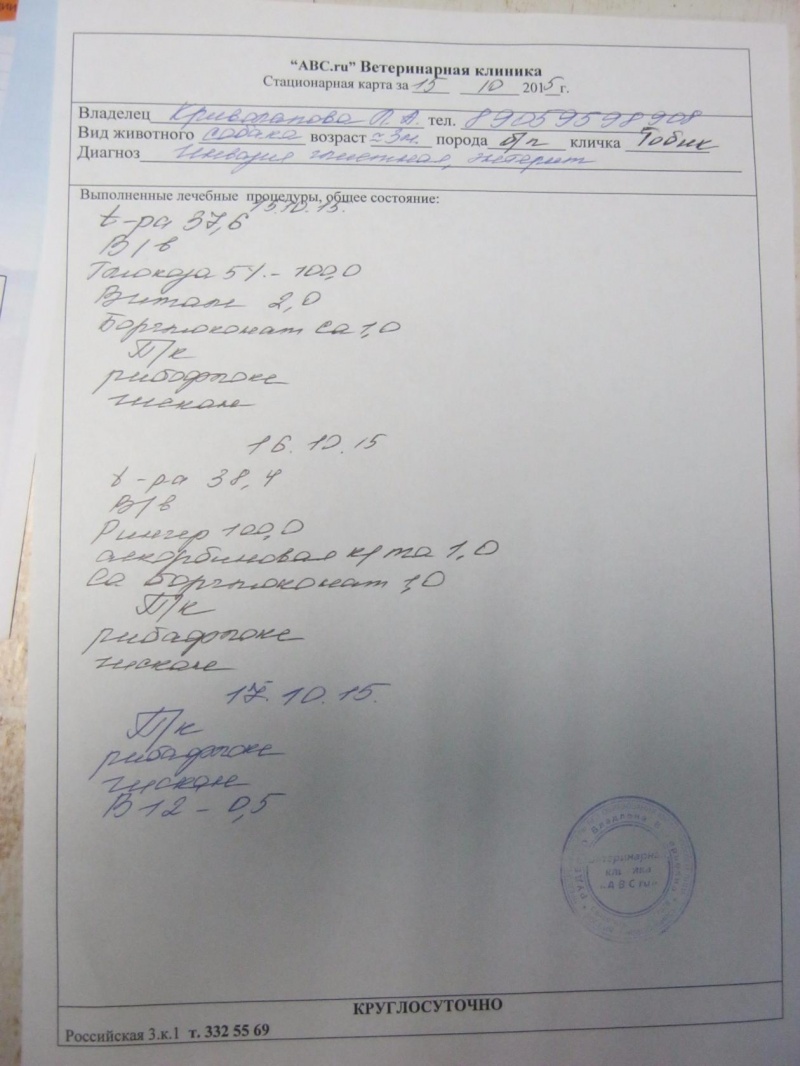 "ABC.ru" Ветеринарная клиника
Стационарная карта за 15 10 2015г.
Владелец Криволапова Л. А. тел. 89059598908
Вид животного собака возраст ≈3м. порода б/п кличка Тобик
Диагноз Инвазия глистная, энтерит
Выполненные лечебные процедуры, общее состояние:
15.10.15.
t-ра 37,6
В/в
Глюкоза 5% - 100,0
Витам 2,0
Борглюконат Ca 1,0
П/к
рибафлокс
гискан
16.10.15
t-ра 38,4
В/в
Рингер 100,0
аскорбиновая к/та 1,0
Ca борглюконат 1,0
П/к
рибафлокс
гискан
17.10.15.
П/к
рибафлокс
гискан
В12 - 0,5
Ветеринарная
клиника
«ABC.ru»
КРУГЛОСУТОЧНО
Российская 3.к.1 т. 332 55 69